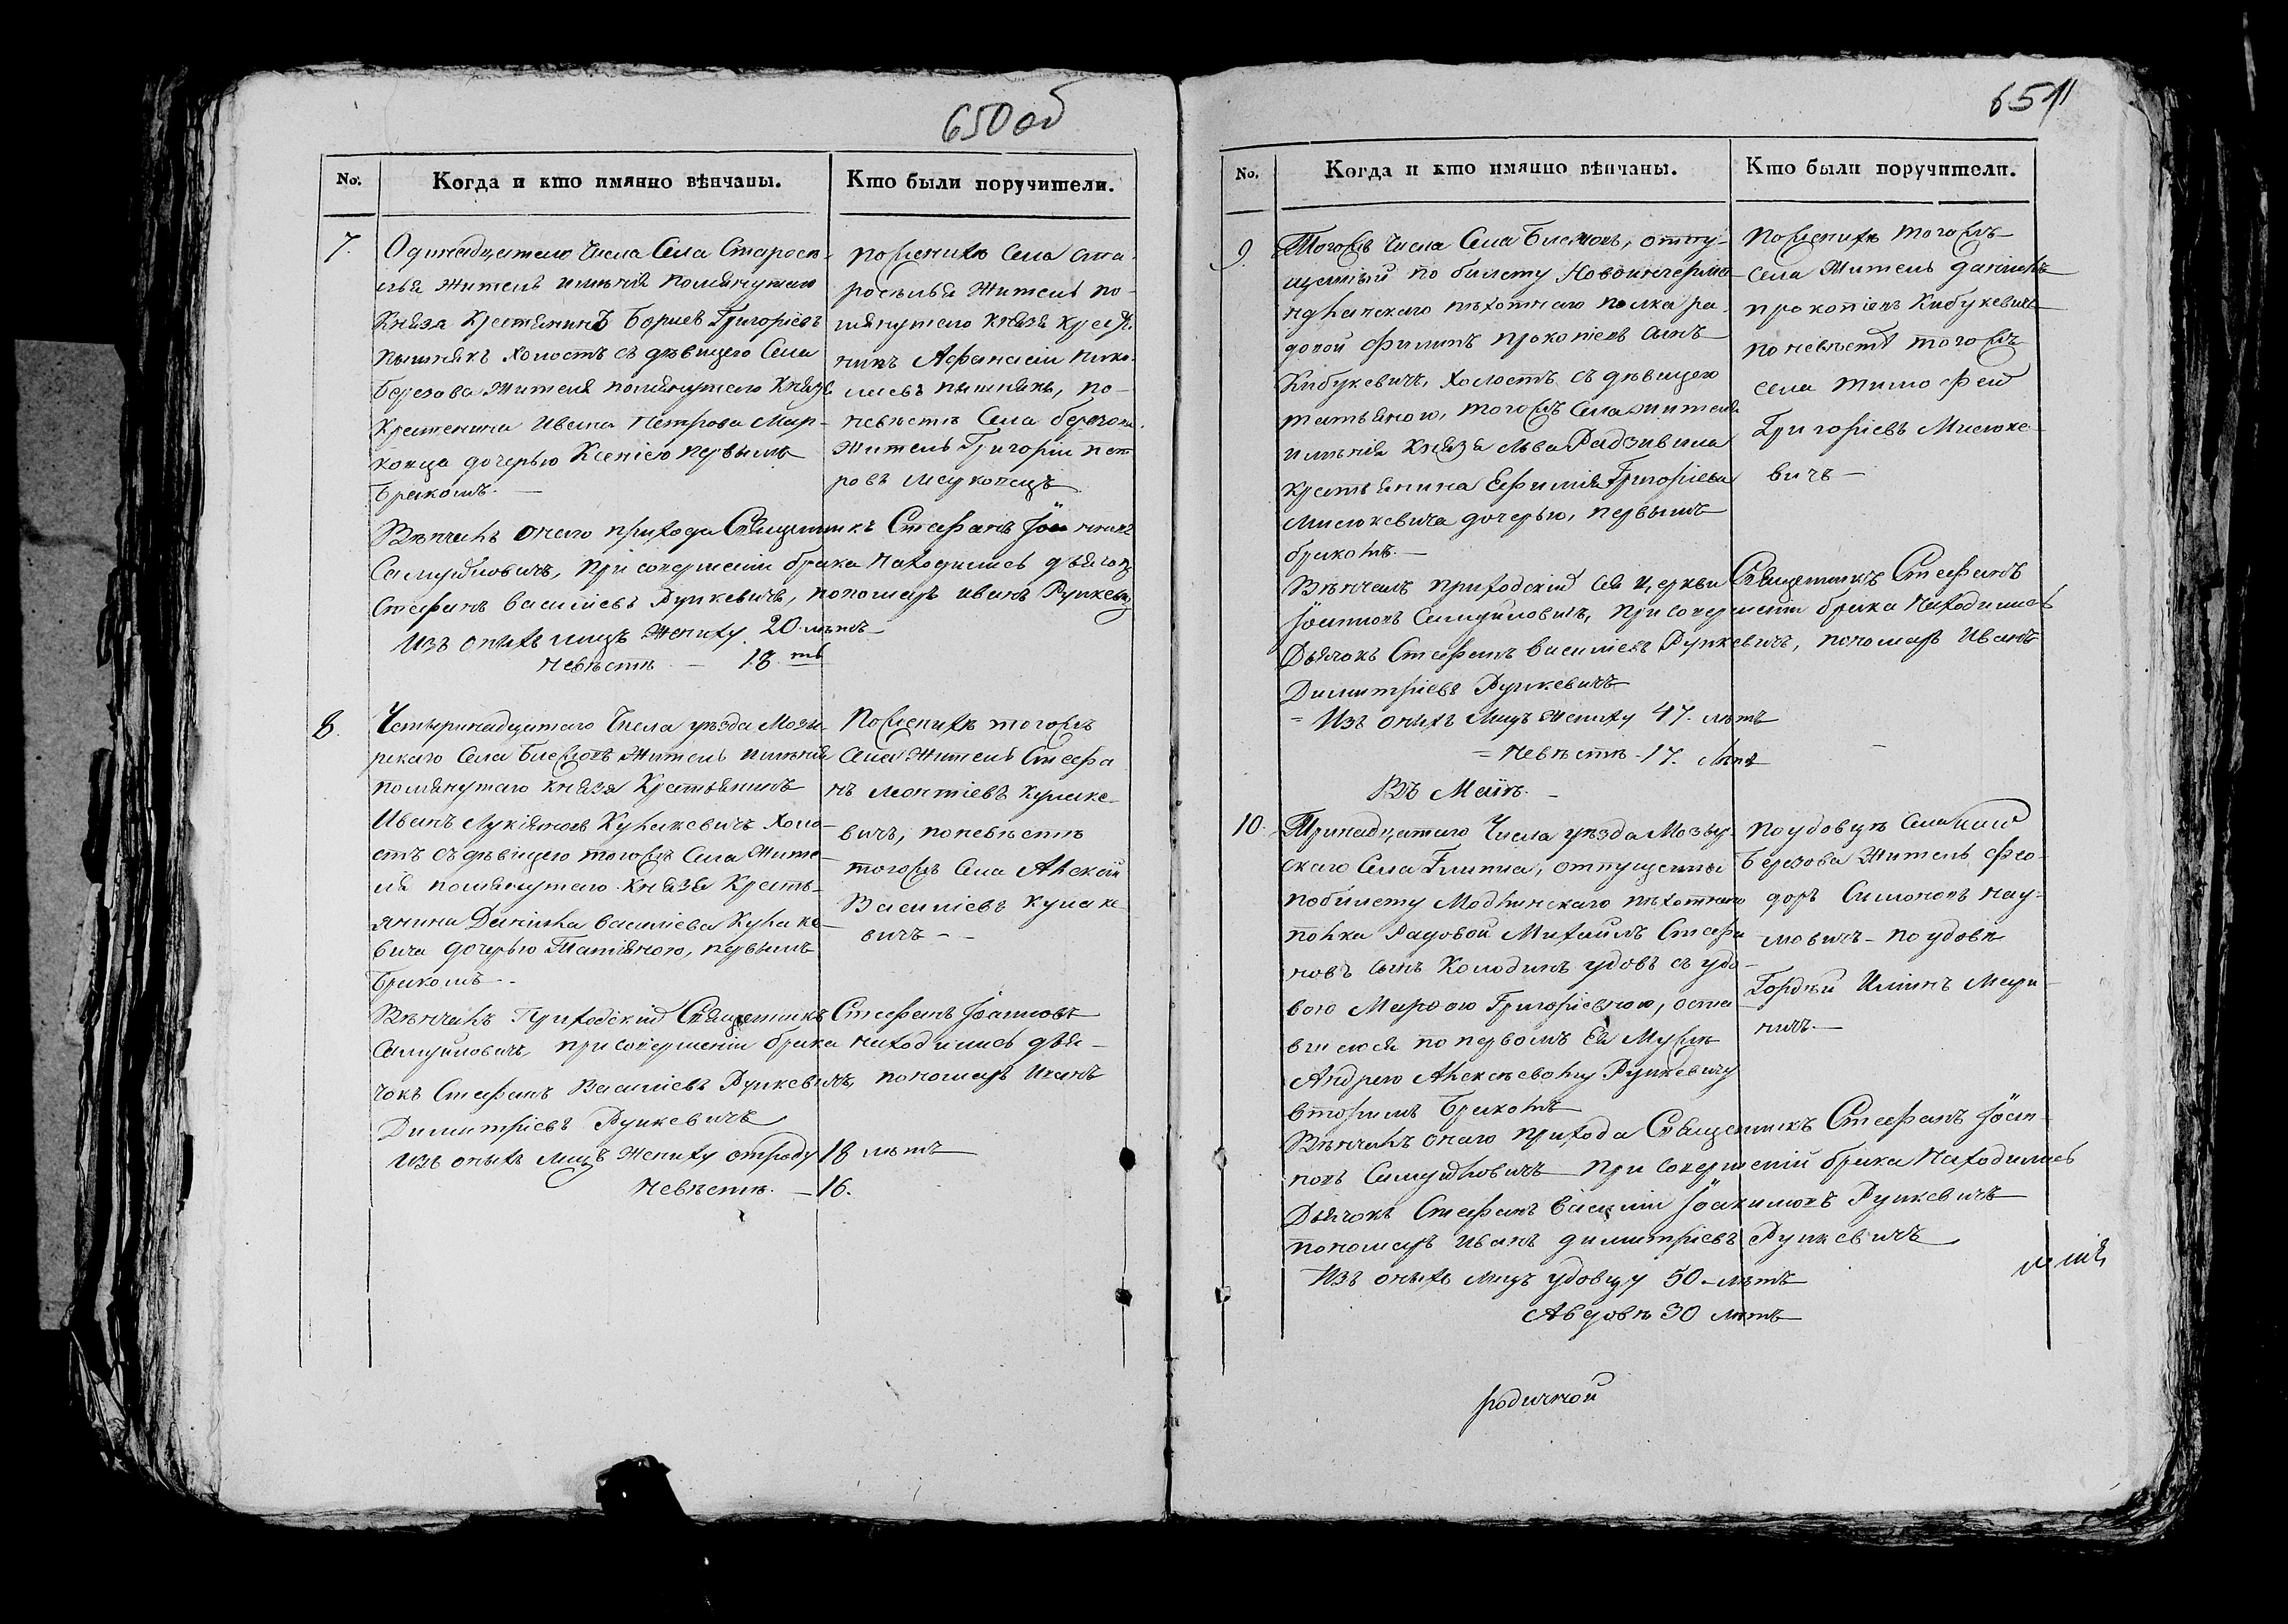 650 об
No.
Когда и кто имянно вѣнчаны.
Кто были поручители.
7.
Одинадцатаго Числа Села Старосѣ-
лья житель имѣнія помянутаго
Князя Крестянинъ Борисъ Григоріевъ
Пышнякъ Холостъ съ дѣвицею Села
Березова жителя помянутаго Князя
Крестенина Ивана Петрова Мар-
ковца дочерью Ксеніею первымъ
бракомъ.
по женихѣ Села Ста-
росѣлья житель по-
мянутаго Князя Крестя-
нинъ Афанасіи Нико-
лаевъ пышнякъ, по-
невѣстѣ Села березова
житель Григоріи пет-
ровъ
Вѣнчалъ онаго прихода Священникъ Стефанъ Іоанновъ
Самуйловичъ, при совершеніи брака находились дьячокъ
Стефанъ василіевъ Рупкевичъ, пономарь иванъ Рупкевичъ
Изъ оныхъ лицъ жениху 20 лѣтъ
невѣстѣ - 18
8.
Четыринадцатаго Числа уѣзда Мозы-
рскаго Села житель имѣнія
помянутаго Князя Крестьянинъ
Иванъ Лукіяновъ Кулакевичъ Холо-
стъ съ дѣвицею тогожъ Села жите-
ля помянутаго Князя Кресть-
янина Даніила василіева Кулаке-
вича дочерью Татіяною, первымъ
бракомъ.
По женихѣ тогожъ
Села житель Стефа
нъ Леонтіевъ Кулаке-
вичъ, поневѣстѣ
тогожъ Села Алексѣй
Василіевъ Кулаке
вичъ - -
Вѣнчалъ Приходскій Священникъ Стефанъ Іоанновъ
Самуйловичъ, при совершеніи брака находились дья-
чокъ Стефанъ Василіевъ Рупкевичъ, пономарь Иванъ
Димитріевъ Рупкевичъ
Изъ оныхъ лицъ жениху отроду 18 лѣтъ
невѣстѣ. - 16.
651
No.
Когда и кто имянно вѣнчаны.
Кто были поручители.
9.
Тогожъ Числа Села отпу-
щенный по билету
пѣхотнаго полка ря-
довой Филипъ прокопіевъ сынъ
Кибукевичъ, холостъ съ дѣвицею
татьяною, тогожъ Села жителя
имѣнія Князя Льва Радзивила
крестьянина Ефимія Григоріева
Мисюкевича дочерью, первымъ
бракомъ.
По женихѣ тогожъ
села житель даніилъ
прокопіевъ Кибукевичъ
поневѣстѣ тогожъ
села тимофей
Григоріевъ Мисюке-
вичъ
Вѣнчалъ приходскій сея Церкви Священникъ Стефанъ
Іоанновъ Самуйловичъ, при совершеніи брака находились
Дьячокъ Стефанъ василіевъ Рупкевичъ, пономарь Иванъ
Димитріевъ Рупкевичъ
= Изъ оныхъ лицъ жениху 47. лѣтъ
= невѣстѣ - 17. лѣтъ
Въ Маіѣ.
10.
Тринадцатаго Числа уѣзда Мозыр-
скаго Села отпущенный
побилету Модлинскаго пѣхотнаго
полка Рядовой Михаилъ Стефа
новъ сынъ Колодинъ удовъ съ удо-
вою Марѳою Григоріевною, оста
вшеюся по первомъ Ея Мужѣ
Андрею Алексѣевому Рупкевичу
вторымъ бракомъ
по удовцѣ Села
Березова житель Фео-
доръ Симоновъ нау-
мовичъ - по удовѣ
Гордѣй Илiинъ
Вѣнчалъ онаго прихода Священникъ Стефанъ Іоан-
новъ Самуйловичъ при совершеніи брака находились
Дьячокъ Стефанъ василіи Рупкевичъ
пономарь иванъ димитріевъ Рупкевичъ
Изъ оныхъ лицъ удовцу 50 - лѣтъ
Авдовѣ 30 лѣтъ
родичной